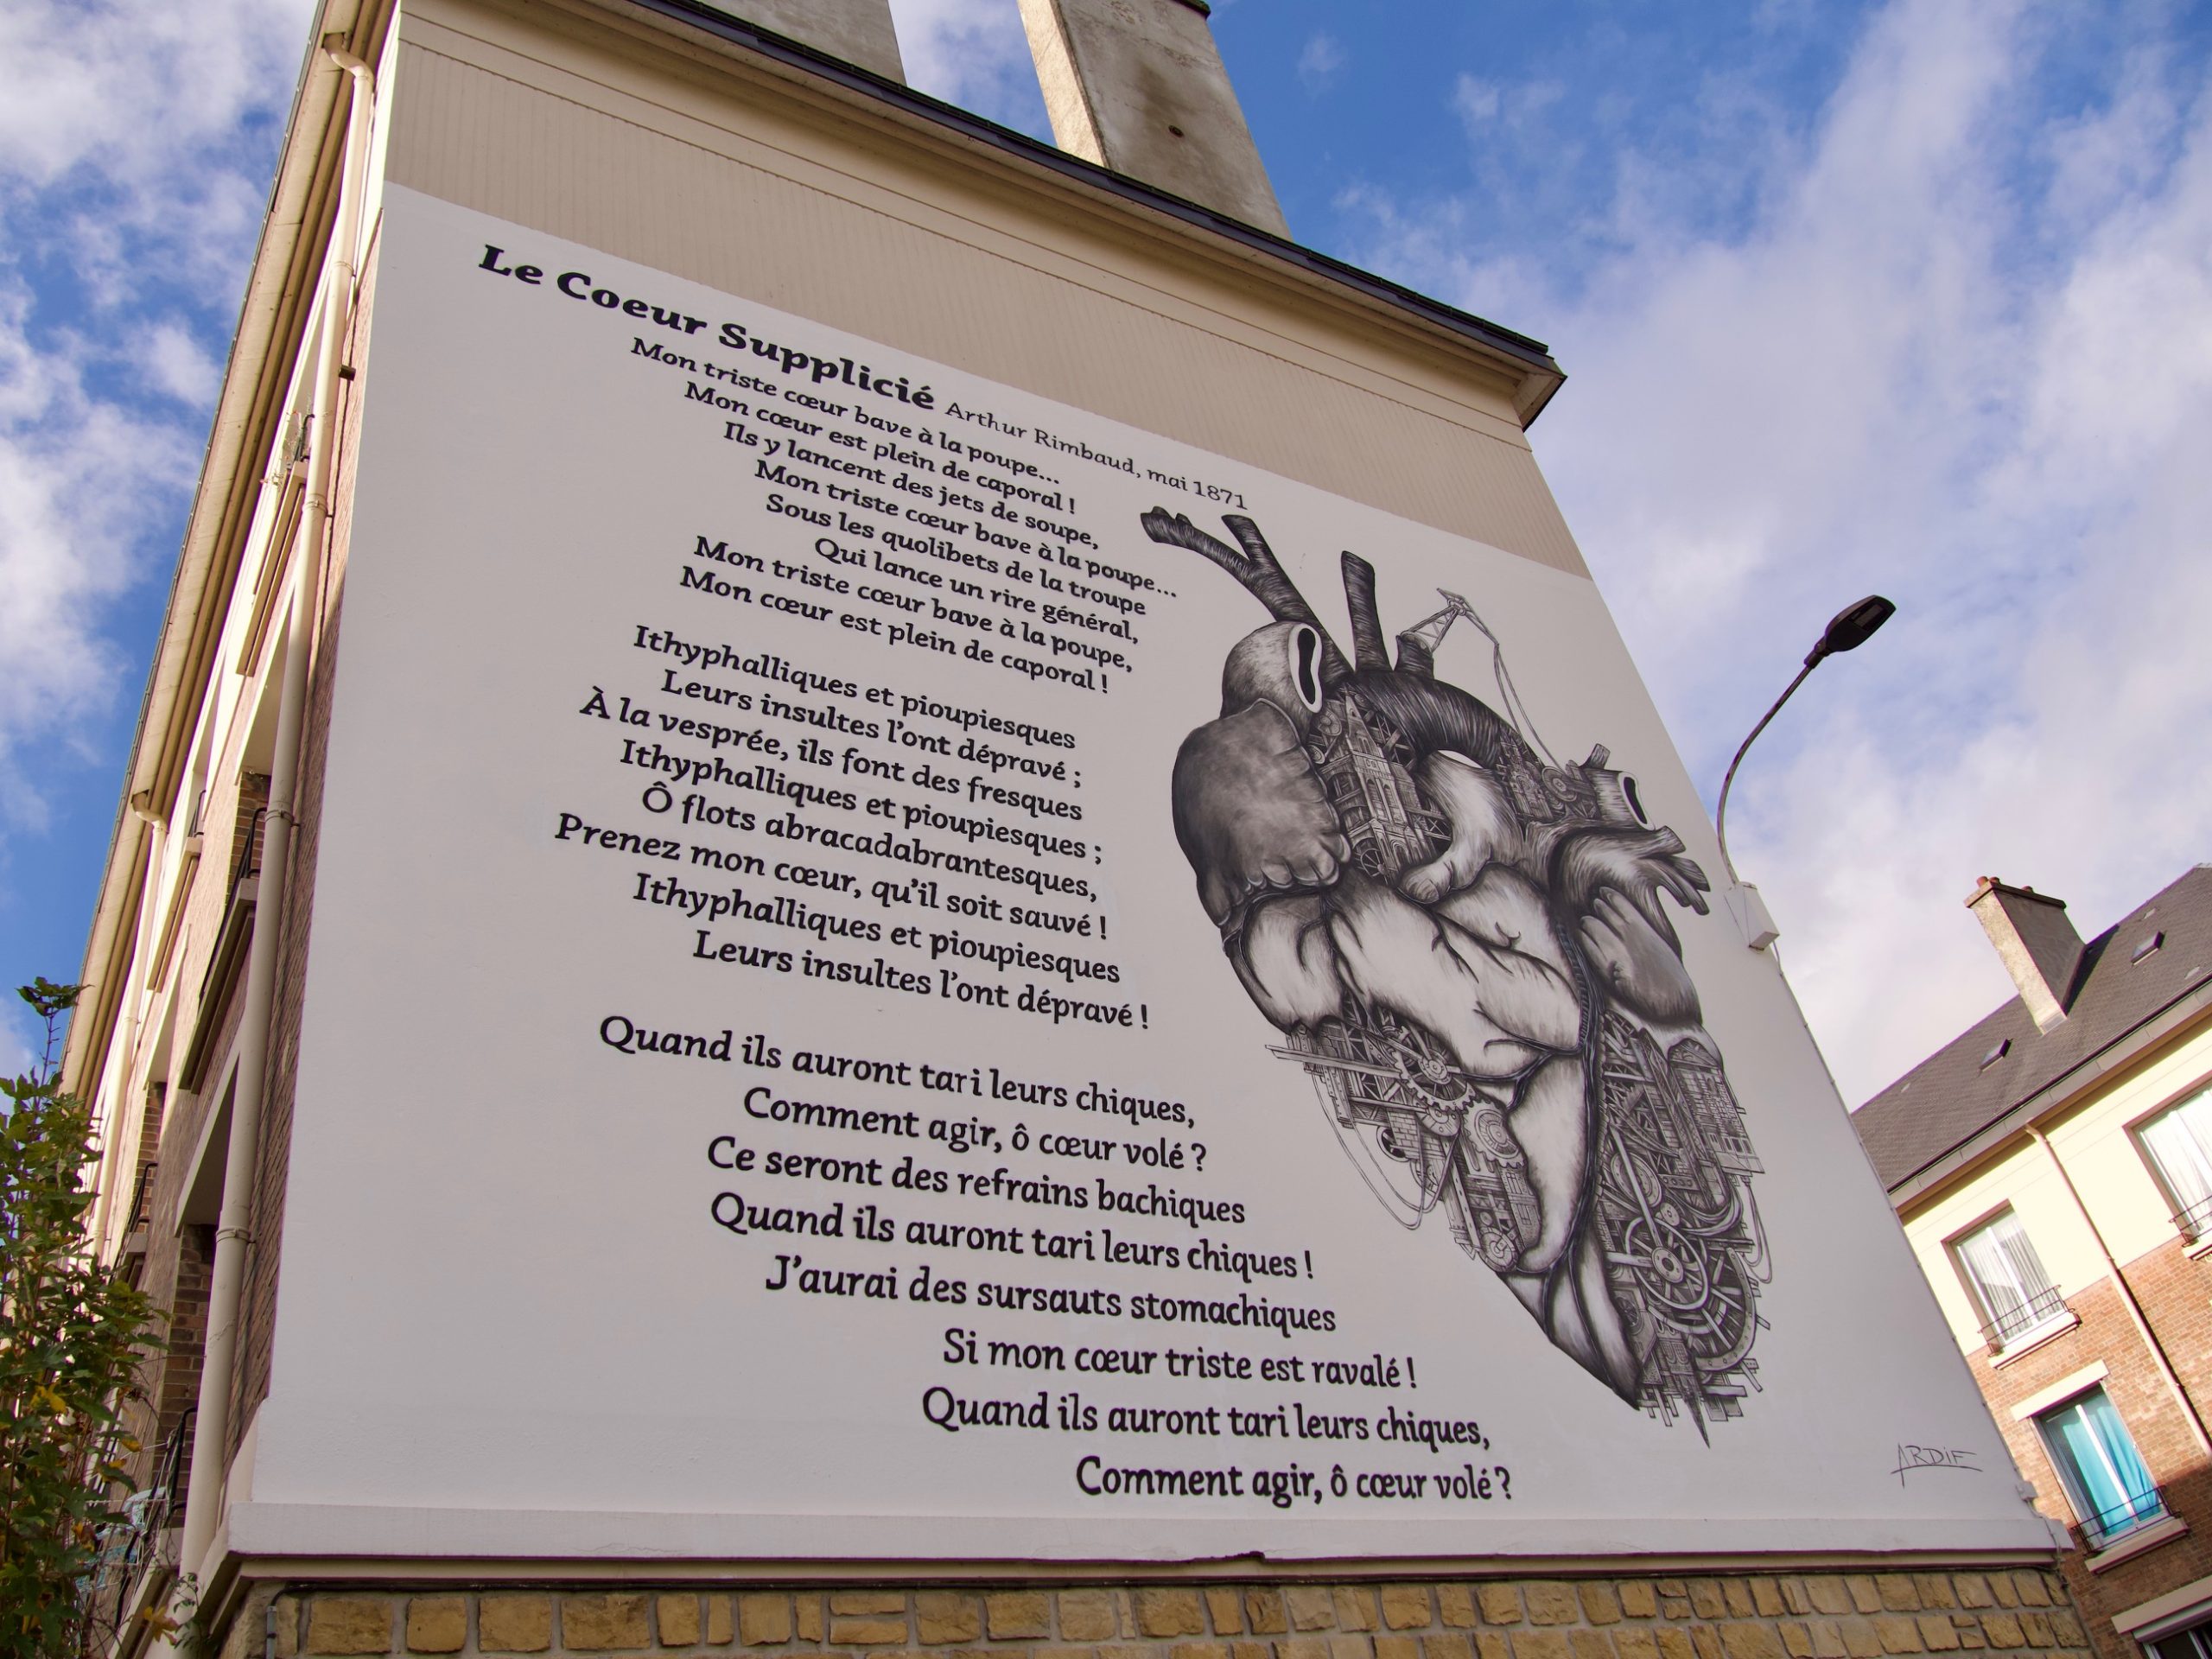 Le Coeur Supplicié Arthur Rimbaud, mai 1871
Mon triste cœur bave à la poupe...
Mon cœur est plein de caporal !
Ils y lancent des jets de soupe,
Mon triste cœur bave à la poupe...
Sous les quolibets de la troupe
Qui lance un rire général,
Mon triste cœur bave à la poupe,
Mon cœur est plein de caporal !
Ithyphalliques et pioupiesques
Leurs insultes l'ont dépravé ;
À la vesprée, ils font des fresques
Ithyphalliques et pioupiesques ;
Ô flots abracadabrantesques,
Prenez mon cœur, qu'il soit sauvé !
Ithyphalliques et pioupiesques
Leurs insultes l'ont dépravé !
Quand ils auront tari leurs chiques,
Comment agir, ô cœur volé ?
Ce seront des refrains bachiques
Quand ils auront tari leurs chiques !
J'aurai des sursauts stomachiques
Si mon cœur triste est ravalé !
Quand ils auront tari leurs chiques,
Comment agir, ô cœur volé ?
ARDIF